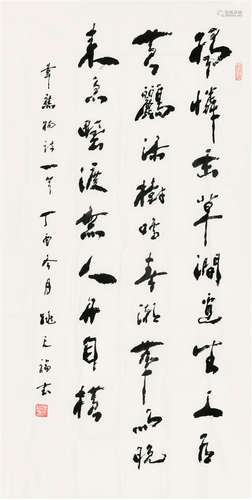 獨憐幽草澗邊生上有
黄鸝深樹鳴春潮帶雨晚
來急野渡無人舟自橫
韋應物詩一首 丁酉冬月 元福書